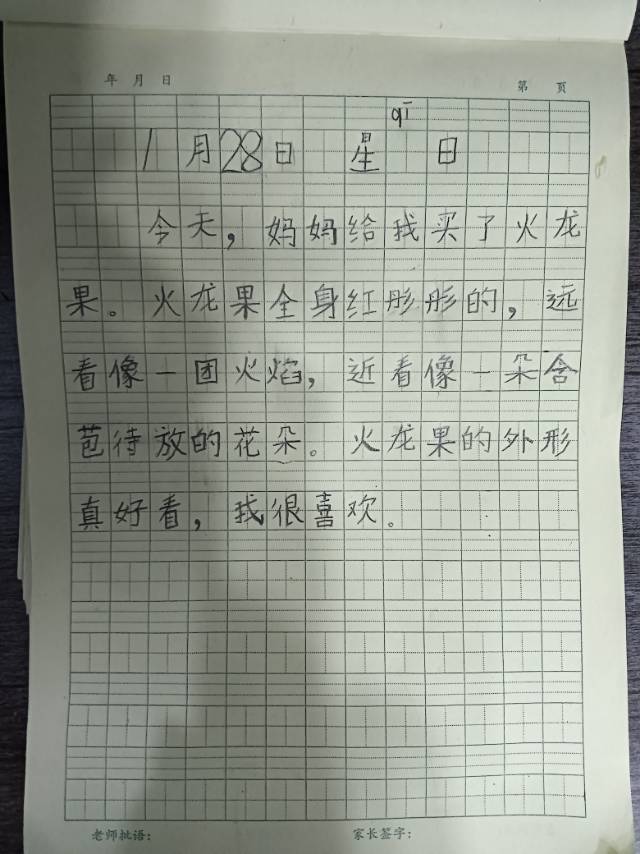 年 月 日 第 页
qī
1月28日 星 日
今天，妈妈给我买了火龙
果。火龙果全身红彤彤的，远
看像一团火焰，近看像一朵含
苞待放的花朵。火龙果的外形
真好看，我很喜欢。
老师批语： 家长签字：